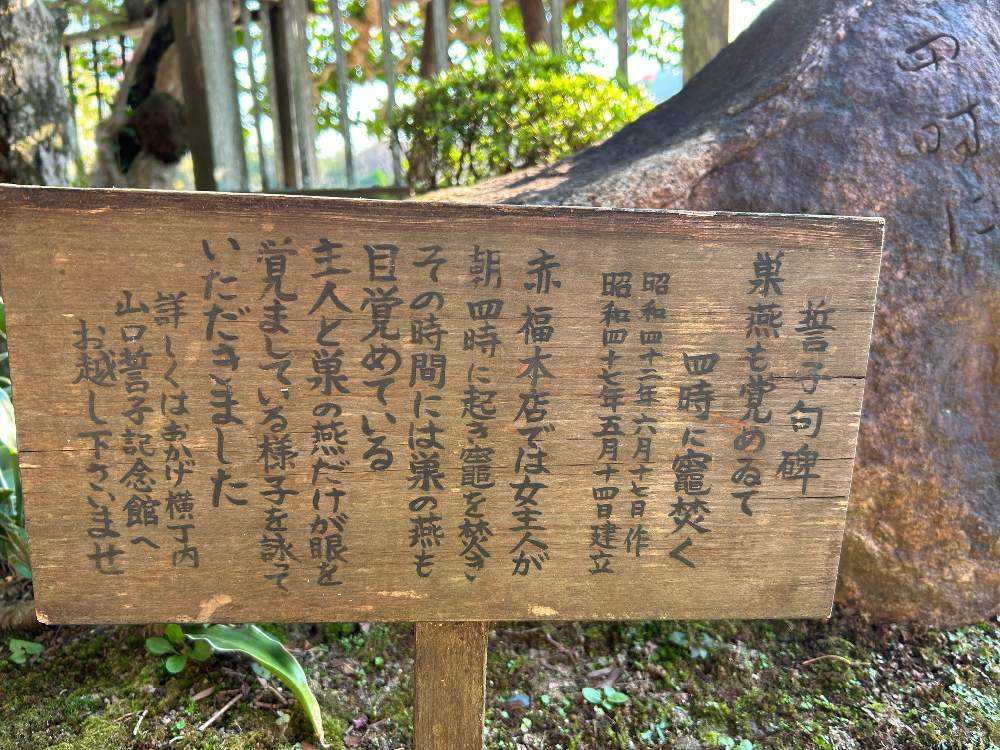 誓子句碑
巣燕も覚めゐて
四時に竈焚く
昭和四十二年六月十七日作
昭和四十七年五月十四日建立
赤福本店では女主人が
朝四時に起き竈を焚き
その時間には巣の燕も
目覚めている
主人と巣の燕だけが眼を
覚ましている様子を詠って
いただきました
詳しくはおかげ横丁内
山口誓子記念館へ
お越し下さいませ
四
時